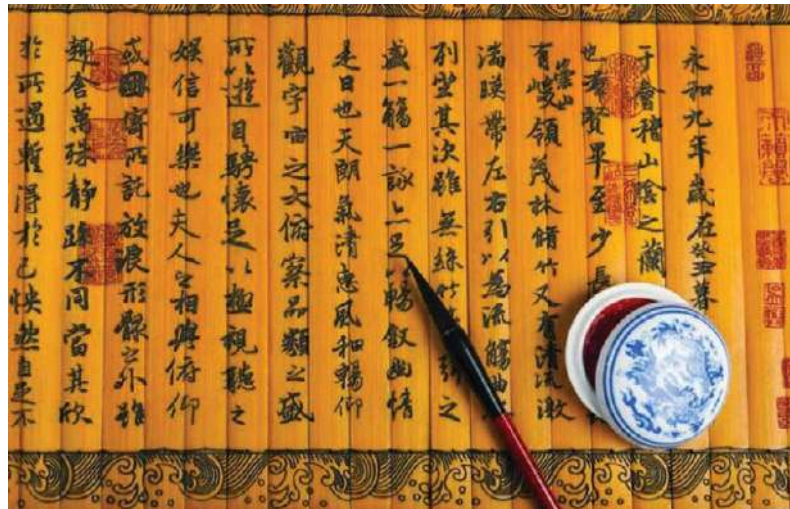 永和九年歲在癸丑暮
于會稽山陰之蘭
也羣賢畢至少長
有崇山峻領茂林脩竹又有清流激
湍暎帶左右引以為流觴曲
列坐其次雖無絲竹弦之
盛一觴一詠亦足以暢敘幽情
是日也天朗氣清惠風和暢仰
觀宇宙之大俯察品類之盛
所以遊目騁懷足以極視聽之
娛信可樂也夫人之相與俯仰
或因寄所託放浪形骸之外雖
趣舍萬殊靜躁不同當其欣
於所遇暫得於己怏然自足不